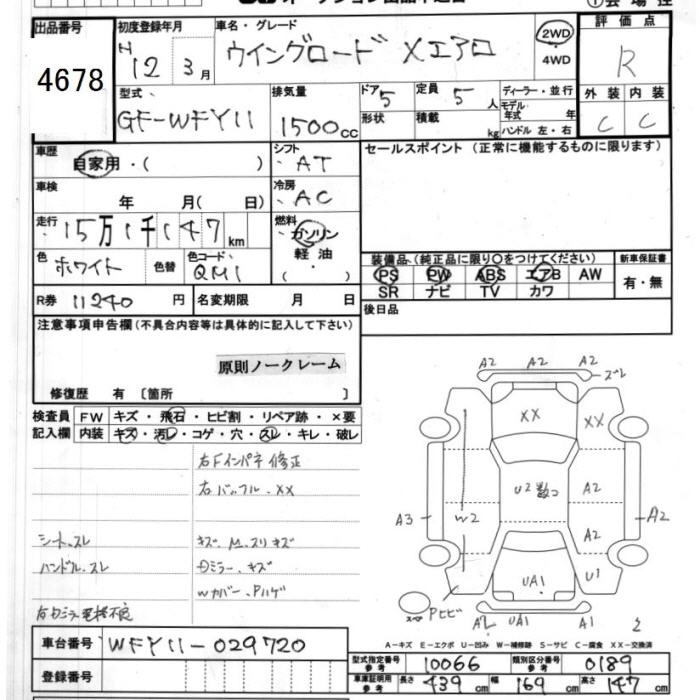 オークション出品申込書
出品番号
4678
初度登録年月
H 12年 3月
車名・グレード
ウイングロード Xエアロ
2WD
4WD
評価点
R
外装 内装
C C
型式
GF-WFY11
排気量
1500cc
ドア 5
形状
定員 5人
積載 kg
ディーラー・並行
モデル年式 年
ハンドル 左・右
車歴
自家用・( )
シフト
AT
セールスポイント (正常に機能するものに限ります)
車検
年 月( 日)
冷房
AC
走行
15万1千147km
燃料
ガソリン
軽油
( )
色
ホワイト
色替
色コード
QM1
装備品 (純正品に限り○をつけてください)
PS PW ABS エアB AW
SR ナビ TV カワ
新車保証書
有・無
R券 11240円
名変期限 月 日
後日品
注意事項申告欄(不具合内容等は具体的に記入して下さい)
原則ノークレーム
修復歴 有 〔箇所 〕
検査員 FW キズ・飛石・ヒビ割・リペア跡・×要
記入欄 内装 キズ・汚レ・コゲ・穴・スレ・キレ・破レ
右Fインパネ修正
右バッフル、XX
シートスレ
キズ、M、スリキズ
ハンドル、スレ
Dミラー、キズ
Wカバー、Pハゲ
A2 A2 A2
ズレ
XX XX
U2数コ A2
A3 W2 A2 A2
UA1 U1
スペア Pヒビ
UA1 A1 2
車台番号 WFY11-029720
登録番号
A-キズ E-エクボ U-凹み W-補修跡 S-サビ C-腐食 XX-交換済
型式指定番号 参考 10066 類別区分番号 参考 0189
車庫証明用 参考 長さ 439cm 幅 169cm 高さ 147cm